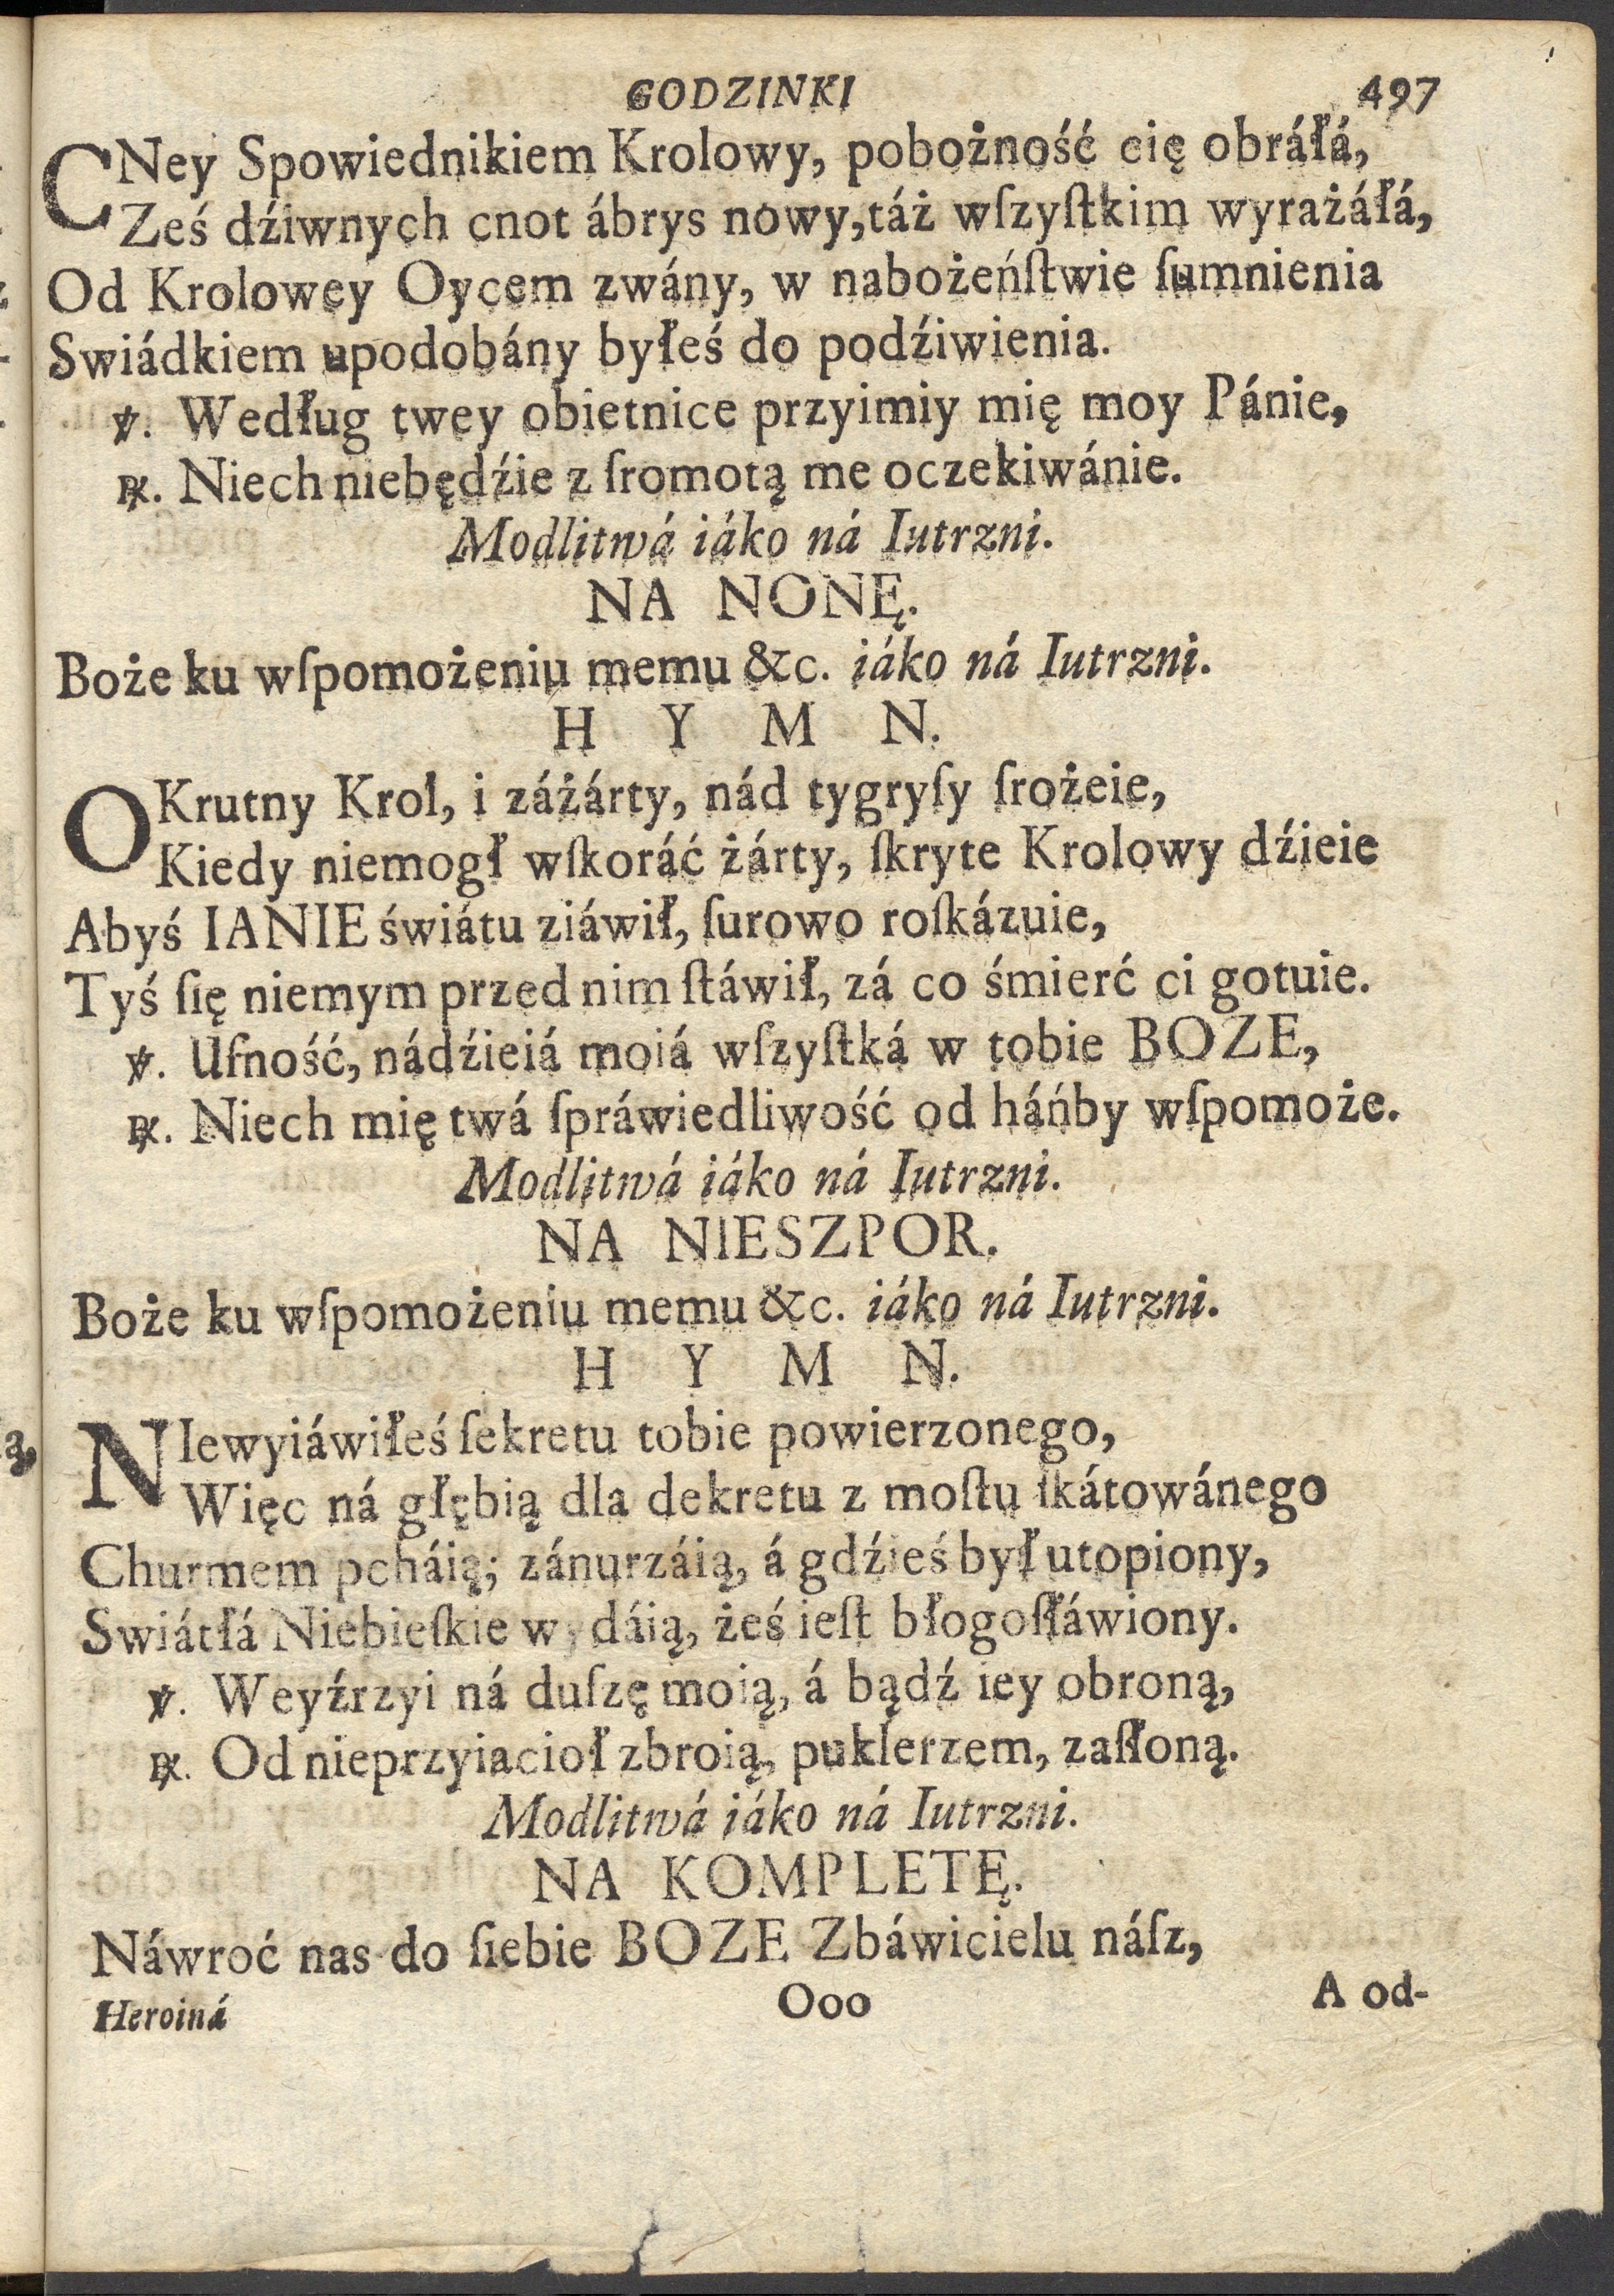 GODZINKI 497
CNey Spowiednikiem Krolowy, pobożność cię obráłá,
Ześ dźiwnych cnot ábrys nowy, táż wſzyſtkim wyrażáłá,
Od Krolowey Oycem zwány, w nabożeńſtwie ſumnienia
Swiádkiem upodobány byłeś do podźiwienia.
℣. Według twey obietnice przyimiy mię moy Pánie,
℟. Niech niebędźie z ſromotą me oczekiwánie.
Modlitwá iáko ná Iutrzni.
NA NONĘ.
Boże ku wſpomożeniu memu &c. iáko ná Iutrzni.
H Y M N.
OKrutny Krol, i záżárty, nád tygryſy ſrożeie,
Kiedy niemogł wſkoráć żárty, ſkryte Krolowy dźieie
Abyś IANIE świátu ziáwił, ſurowo roſkázuie,
Tyś ſię niemym przed nim ſtáwił, zá co śmierć ci gotuie.
℣. Ufność, nádźieiá moiá wſzyſtká w tobie BOZE,
℟. Niech mię twá ſpráwiedliwość od háńby wſpomoże.
Modlitwá iáko ná Iutrzni.
NA NIESZPOR.
Boże ku wſpomożeniu memu &c. iáko ná Iutrzni.
H Y M N.
NIewyiáwiłeś ſekretu tobie powierzonego,
Więc ná głębią dla dekretu z moſtu ſkátowánego
Churmem pcháią; zánurzáią, á gdźieś był utopiony,
Swiátłá Niebieſkie wydáią, żeś ieſt błogoſłáwiony.
℣. Weyźrzyi ná duſzę moią, á bądź iey obroną,
℟. Od nieprzyiacioł zbroią, puklerzem, zaſłoną.
Modlitwá iáko ná Iutrzni.
NA KOMPLETĘ.
Náwroć nas do ſiebie BOZE Zbáwicielu náſz,
Heroiná Ooo A od-